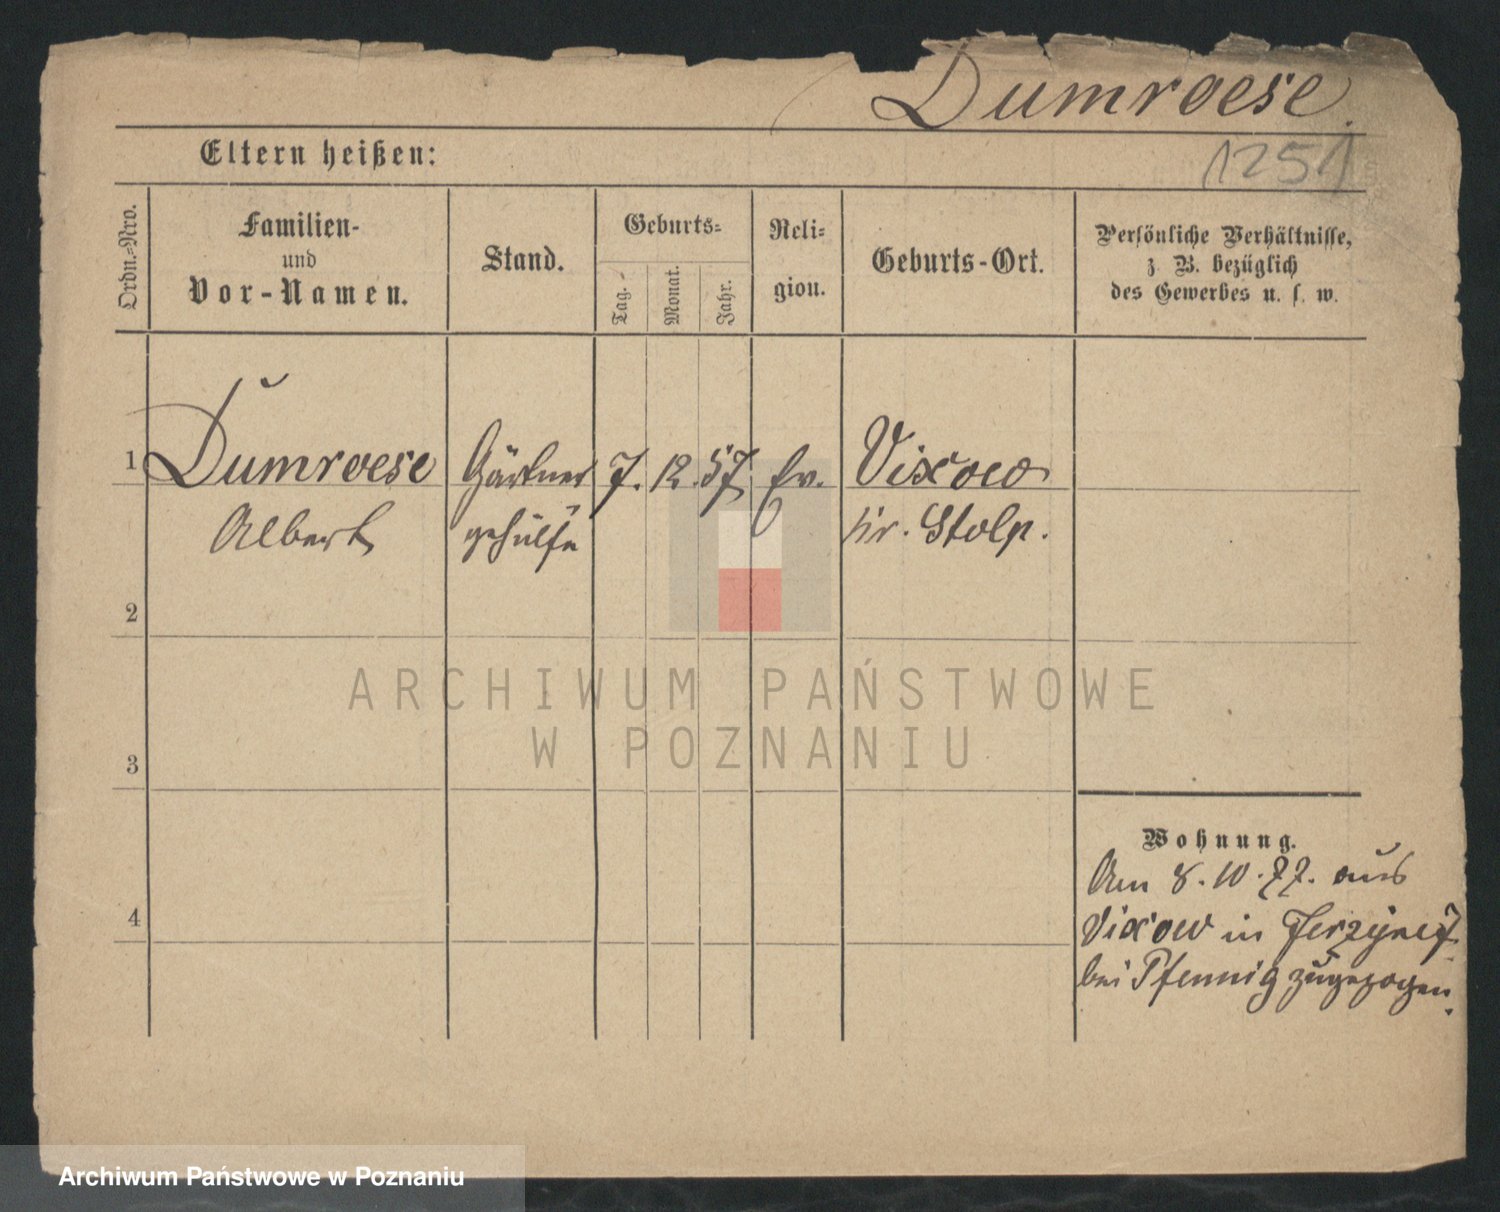 Dumroese.
1251
Eltern heißen:
Ordn.-Nro.
Familien-
und
Vor-Namen.
Stand.
Geburts-
Tag.
Monat.
Jahr.
Reli-
gion.
Geburts-Ort.
Persönliche Verhältnisse,
z. B. bezüglich
des Gewerbes u. s. w.
1 Dumroese Gärtner 7. 12. 57 Ev. Vixow
Albert gehülfe Kr. Stolp.
2
ARCHIWUM PAŃSTWOWE
W POZNANIU
3
Wohnung.
Am 8. 10. 77. aus
Vixow in
4
bei Pfennig zugezogen.
Archiwum Państwowe w Poznaniu